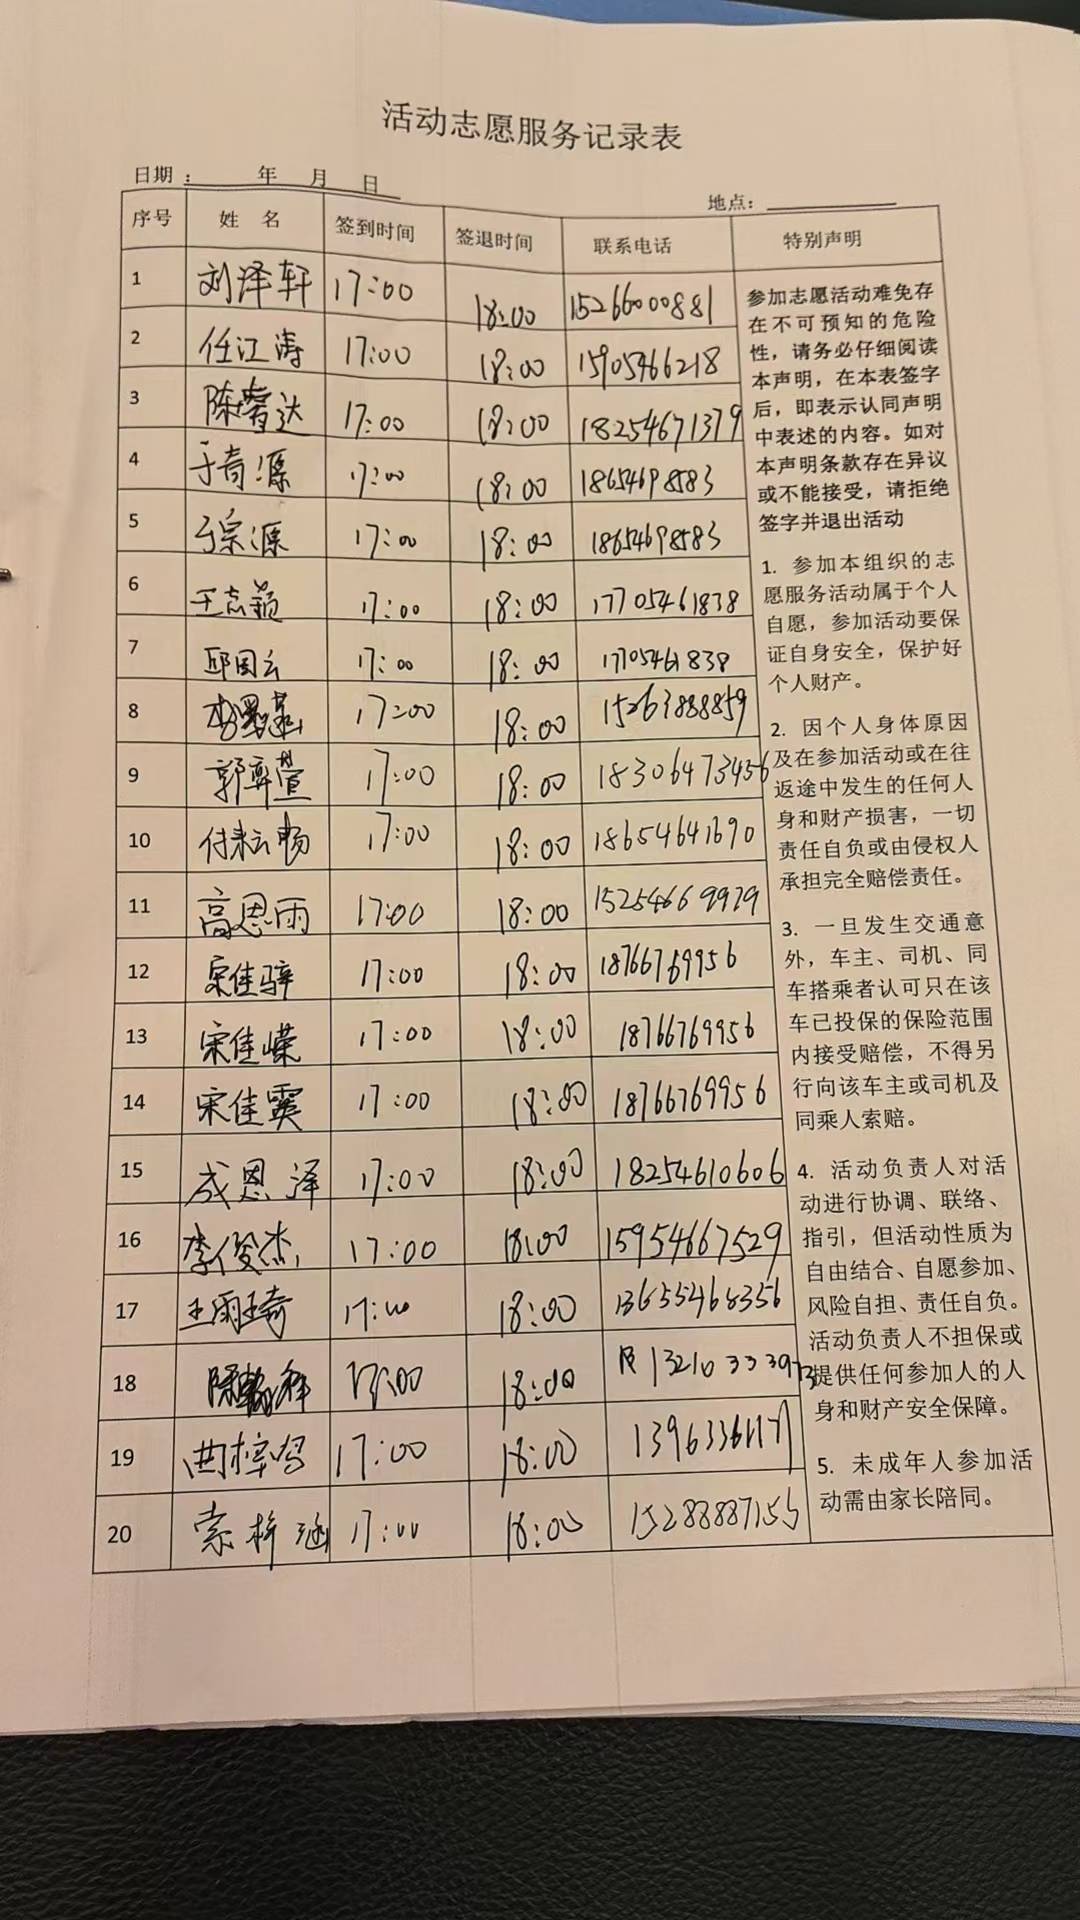 活动志愿服务记录表
日期： 年 月 日
地点：
序号 姓 名 签到时间 签退时间 联系电话 特别声明
1 刘泽轩 17:00 18:00 15266000881
2 任江涛 17:00 18:00 15905466218
3 陈睿达 17:00 18:00 18254671379
4 于奇源 17:00 18:00 18654698583
5 于宗源 17:00 18:00 18654698583
6 王志颖 17:00 18:00 17705461838
7 邱国云 17:00 18:00 17705461838
8 17:00 18:00 15263888859
9 郭弈萱 17:00 18:00 18306473456
10 17:00 18:00 18654641690
11 高恩雨 17:00 18:00 15254669979
12 宋佳骍 17:00 18:00 18766769956
13 宋佳嵘 17:00 18:00 18766769956
14 宋佳霙 17:00 18:00 18766769956
15 成恩泽 17:00 18:00 18254610606
16 李俊杰 17:00 18:00 15954667529
17 王雨琦 17:00 18:00 13655468356
18 17:00 18:00
19 曲梓鸣 17:00 18:00
20 索梓涵 17:00 18:00 15288887155
参加志愿活动难免存
在不可预知的危险
性，请务必仔细阅读
本声明，在本表签字
后，即表示认同声明
中表述的内容。如对
本声明条款存在异议
或不能接受，请拒绝
签字并退出活动
1. 参加本组织的志
愿服务活动属于个人
自愿，参加活动要保
证自身安全，保护好
个人财产。
2. 因个人身体原因
及在参加活动或在往
返途中发生的任何人
身和财产损害，一切
责任自负或由侵权人
承担完全赔偿责任。
3. 一旦发生交通意
外，车主、司机、同
车搭乘者认可只在该
车已投保的保险范围
内接受赔偿，不得另
行向该车主或司机及
同乘人索赔。
4. 活动负责人对活
动进行协调、联络、
指引，但活动性质为
自由结合、自愿参加、
风险自担、责任自负。
活动负责人不担保或
提供任何参加人的人
身和财产安全保障。
5. 未成年人参加活
动需由家长陪同。